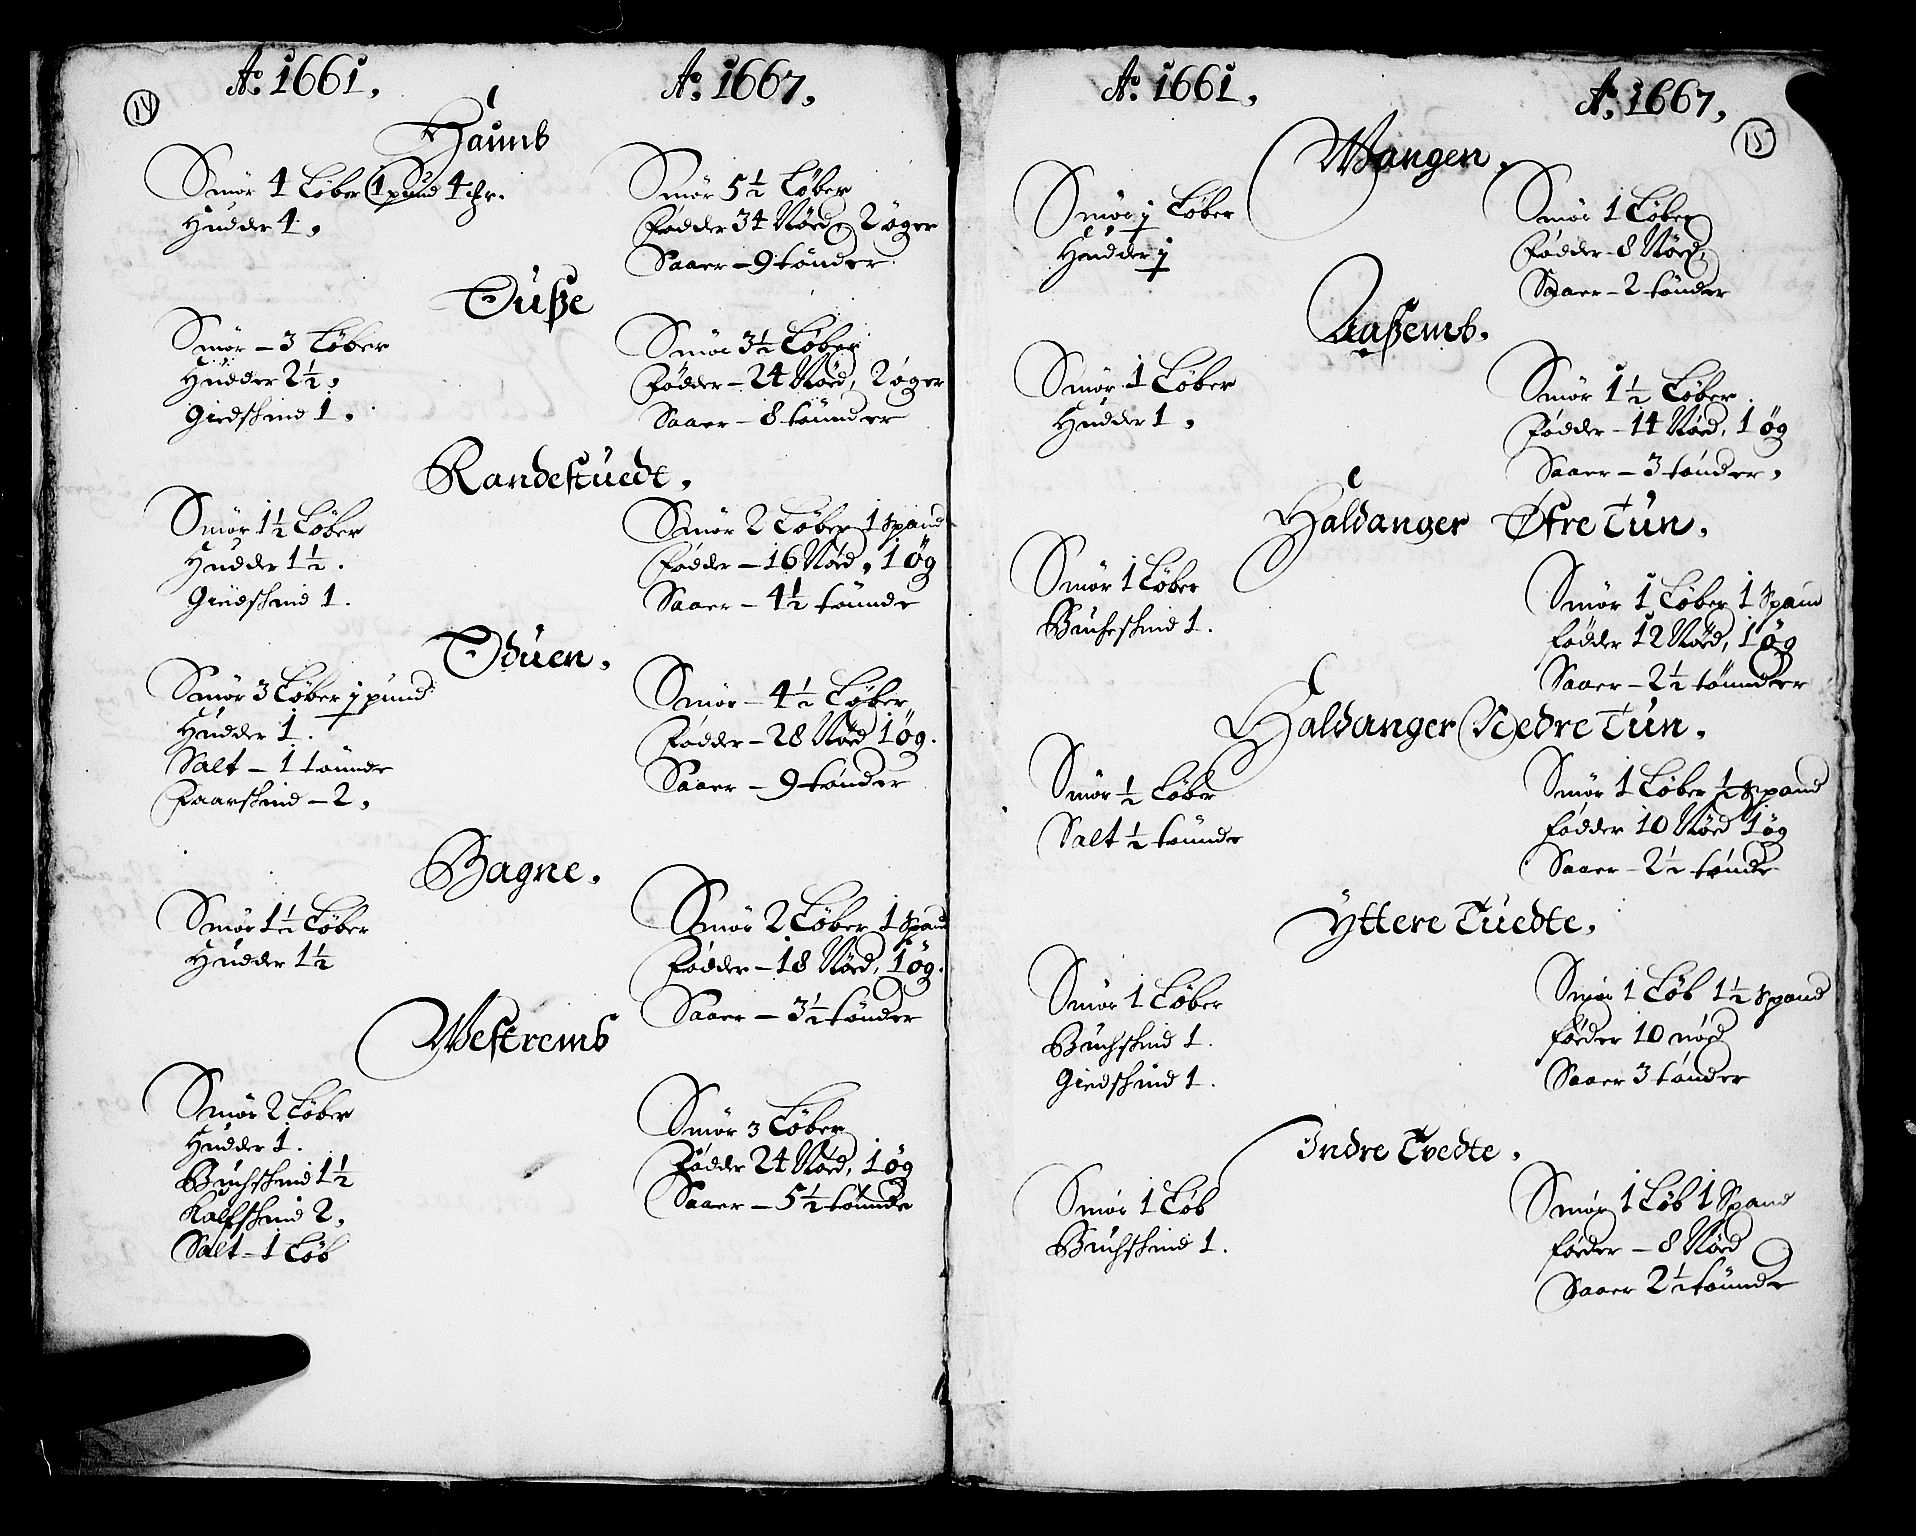 14
Ao. 1661, Ao. 1667,
Haims
Smør 4 Løber 1 pund 4
Hudder 4,
Smør 5½ Løber
Fødder 34 Nörd, 2 øger
Saaer – 9 tönder
Tüsße
Smør – 3 Löber
Hüdder 2½,
Giedskind 1,
Smør 3½ Løber
Fødder – 24 Nörd, 2 öger
Saaer – 8 tönder
Randestüedt,
Smør 1½ Løber
Hudder 1½.
Giedskind 1.
Smør 2 Løber 1 Spand
Fødder – 16 Nörd, 1 øg
Saaer – 4½ tönnde
Odüen,
Smør 3 Løber j pund
Hüdder 1.
Salt – 1 tönnde
Faarskind – 2,
Smør – 4½ Løber
Fødder – 28 Nörd 1 øg.
Saaer – 9 tönder
Bagne,
Smør 1½ Løber
Hudder 1½
Smør 2 Løber 1 Spand
Fødder – 18 Nörd, 1 øg.
Saaer – 3½ tønder
Westrems
Smør 2 Løber
Hudder 1.
Buchskind 1½
Kalfskind 2,
Salt – 1 Løb
Smør 3 Løber
Fødder 24 Nörd, 1 øg
Saaer – 5½ tønnde
15
Ao. 1661, Ao. 1667,
Wangen,
Smör j Løber
Hudder j
Smør 1 Løber
Fødder – 8 Nörd,
Saaer – 2 tönder
Aasßems.
Smør 1 Løber
Hudder 1,
Smør 1½ Løber.
Fødder – 14 Nörd, 1 øg
Saaer – 3 tønder,
Haldanger Øfre Tün,
Smør 1 Løber
Buchskind 1.
Smør 1 Løber 1 Spand
födder 12 Nörd, 1 øg
Saaer – 2½ tönnder
Haldanger Nedre Tün,
Smør ½ Løber
Salt ½ tönnde
Smør 1 Løber ½ Spand
födder 10 Nörd 1 øg
Saaer – 2½ tönde
Yttere Tüedte,
Smør 1 Løber
Buchskind 1.
Giedskind 1.
Smør 1 Løb 1½ Spand
föeder 10 nörd
Saaer 3 tönder
Indre Tvedte,
Smør 1 Løb
Buchskind 1.
Smør 1 Løb 1 Spand
föeder – 8 Nörd
Saaer 2½ tönnde